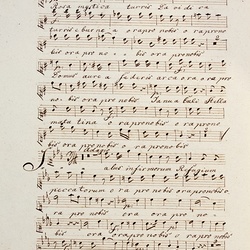 Rosa mystica turris Davidica
turris eburnea ora pro nobis ora pro no
bis ora pro no bis ora pro nobis
Domus aurea foederis arca ora ora pro
no bis ora pro nobis Janua coeli Stella
matutina ora pro nobis ora pro no
bis ora pro nobis ora pro nobis
Adagio
Salus infirmorum Refugium
peccatorum ora pro nobis ora pro nobis o
ra pro nobis ora ora pro no
bis ora pro nobis ora pro nobis